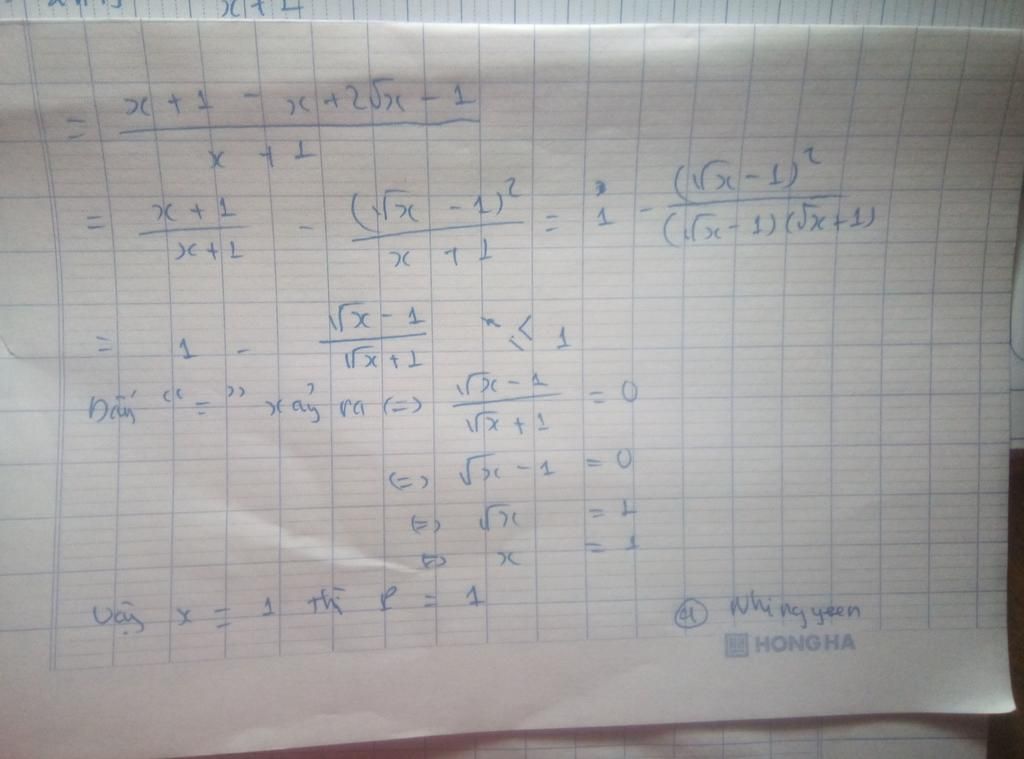 x + 1
= \frac{x + 1 - x + 2\sqrt{x} - 1}{x + 1}
= \frac{x + 1}{x + 1} - \frac{(\sqrt{x} - 1)^2}{x + 1} = 1 - \frac{(\sqrt{x} - 1)^2}{(\sqrt{x} - 1)(\sqrt{x} + 1)}
= 1 - \frac{\sqrt{x} - 1}{\sqrt{x} + 1} ≤ 1
Dấu "=" xảy ra <=> \frac{\sqrt{x} - 1}{\sqrt{x} + 1} = 0
<=> \sqrt{x} - 1 = 0
<=> \sqrt{x} = 1
<=> x = 1
Vậy x = 1 thì P = 1
Nhi nguyen
HONG HA